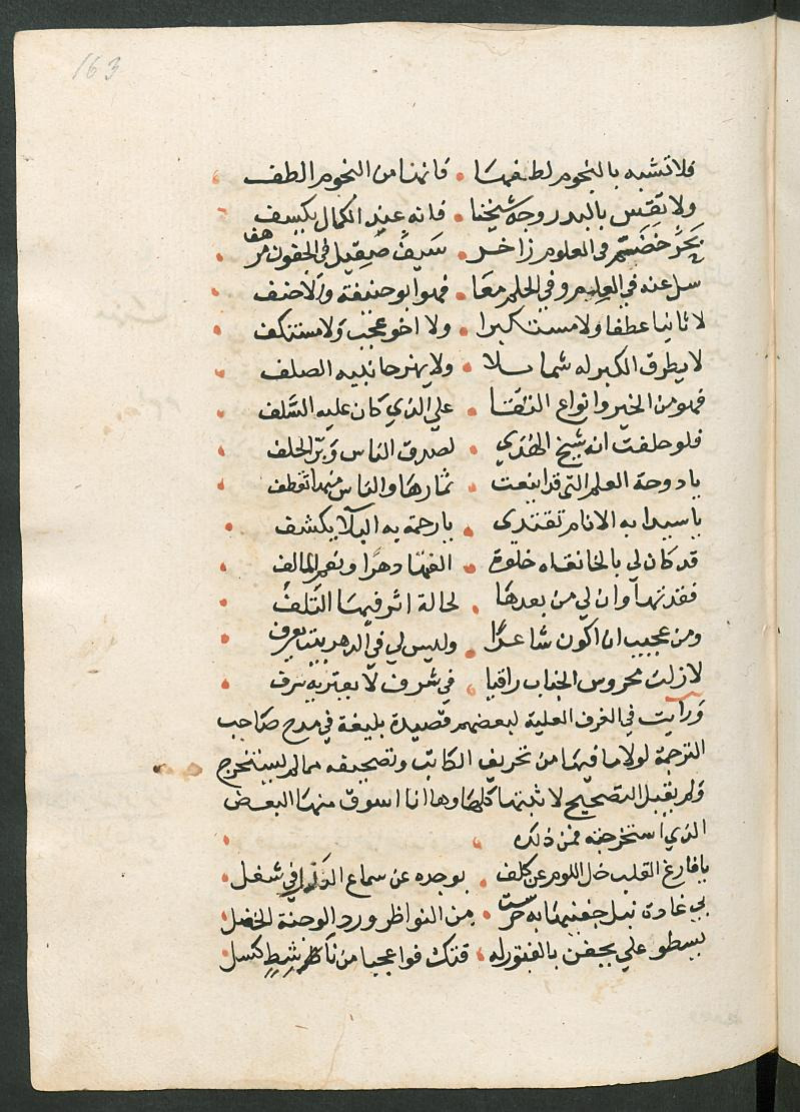 163
فلا تشبه بالنجوم لطفها • فانها من النجوم الطف
ولا تقس بالبدر وجه شيخنا • فانه عند الكمال يكسف
بحر خضم في العلوم زاخر • سيف صقيل في الحقوق مرهف
سل عنه في العلم وفي الحلم معا • فهو ابو حنيفة والاحنف
لا ثانيا عطفا ولا مستكبرا • ولا اخو عجب ولا مستنكف
لا يطرق الكبر له شمايلا • ولا يهز جانبيه الصلف
فهو من الخير وانواع التقا • علي الذي كان عليه السلف
فلو حلفت انه شيخ الهدي • لصدق الناس وبر الحلف
يا دوحة العلم التي قد اينعت • ثمارها والناس منها تقطف
يا سيدا به الانام تقتدي • يا رحمة به البلا يكشف
قد كان لي بالخانقاه خلوة • الفتها دهرا ونعم المالف
فقدتها وان لي من بعدها • لحالة اثر فيها التلف
ومن عجيب ان اكون شاعرا • وليس لي في الدهر بيت يعرف
لازلت محروس الجناب راقيا • في شرف لا يعتريه سرف
ورايت في الغرف العلية لبعضهم قصيدة بليغة في مدح صاحب
الترجمة لولا ما فيها من تحريف الكاتب وتصحيفه مما لم يستخرج
ولم يقبل التصحيح لا ثبتها كلها وها انا اسوق منها البعض
الذي استخرجته فمن ذلك
يا فارغ القلب خل اللوم عن كلف • بوجده عن سماع العذل في شغل
بي غادة نبل جفنيها به حرست • من النواظر ورد الوجنة الخضل
يسطو علي بجفن بالفتور له • فتك فوا عجبا من ناظر نشط كسل